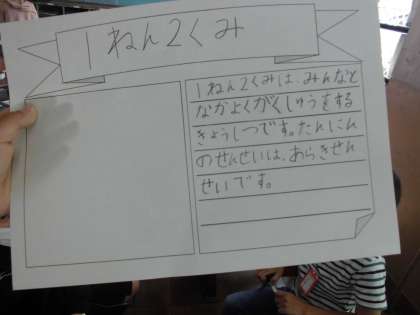 1ねん2くみ
1ねん2くみは、みんなと
なかよくがくしゅうをする
きょうしつです。たんにん
のせんせいは、あらきせん
せいです。